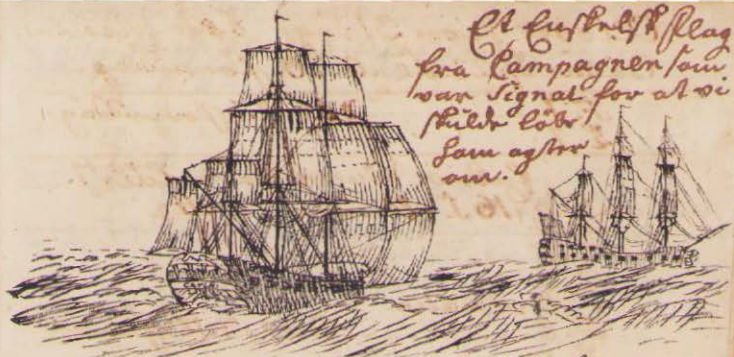 Et Enskelsk flag
fra Campagnen som
var Signal for at vi
skulde løbe
ham agter
om.